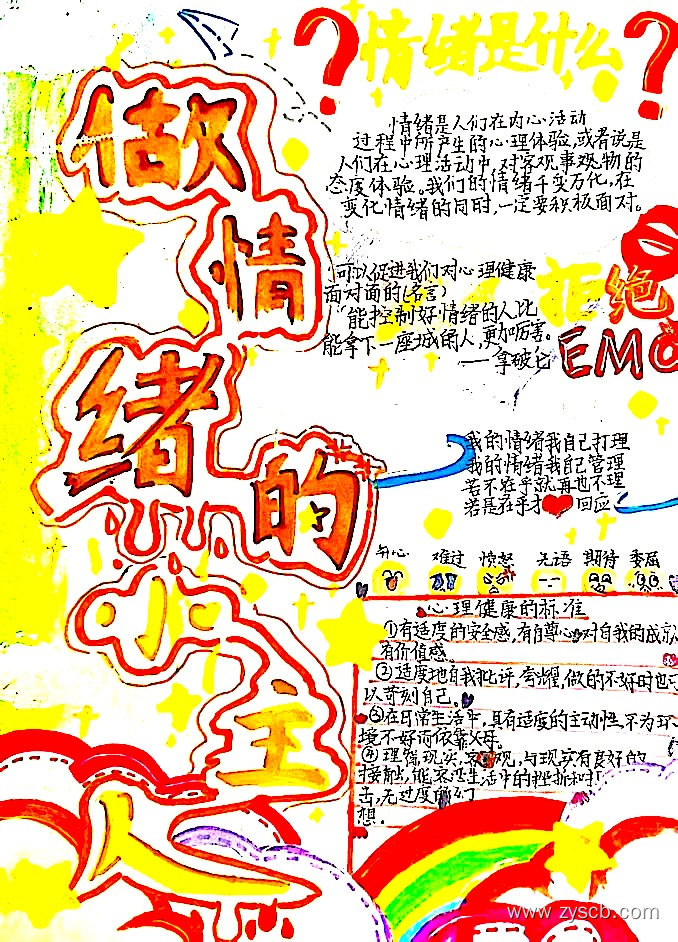 做情绪的小主人
?情绪是什么?
情绪是人们在内心活动
过程中所产生的心理体验,或者说是
人们在心理活动中,对客观事物的
态度体验。我们的情绪千变万化,在
变化情绪的同时,一定要积极面对。
可以促进我们对心理健康
面对面的(名言)
能控制好情绪的人比
能拿下一座城的人,更加厉害。
——拿破仑
拒绝
EMO
我的情绪我自己打理
我的情绪我自己管理
若不在乎就再也不理
若是在乎才 回应
开心 难过 愤怒 无语 期待 委屈
心理健康的标准
①有适度的安全感,有自尊心,对自我的成
有价值感。
②适度地自我批评,夸耀,做的不好时也可
以苛刻自己。
③在日常生活中,具有适度的主动性,不为环
境不好而依靠父母。
④理 现实,客观,与现实有良好的
接触,能 生活中的挫折和打
击,无过度的幻
想。
www.zyscb.com